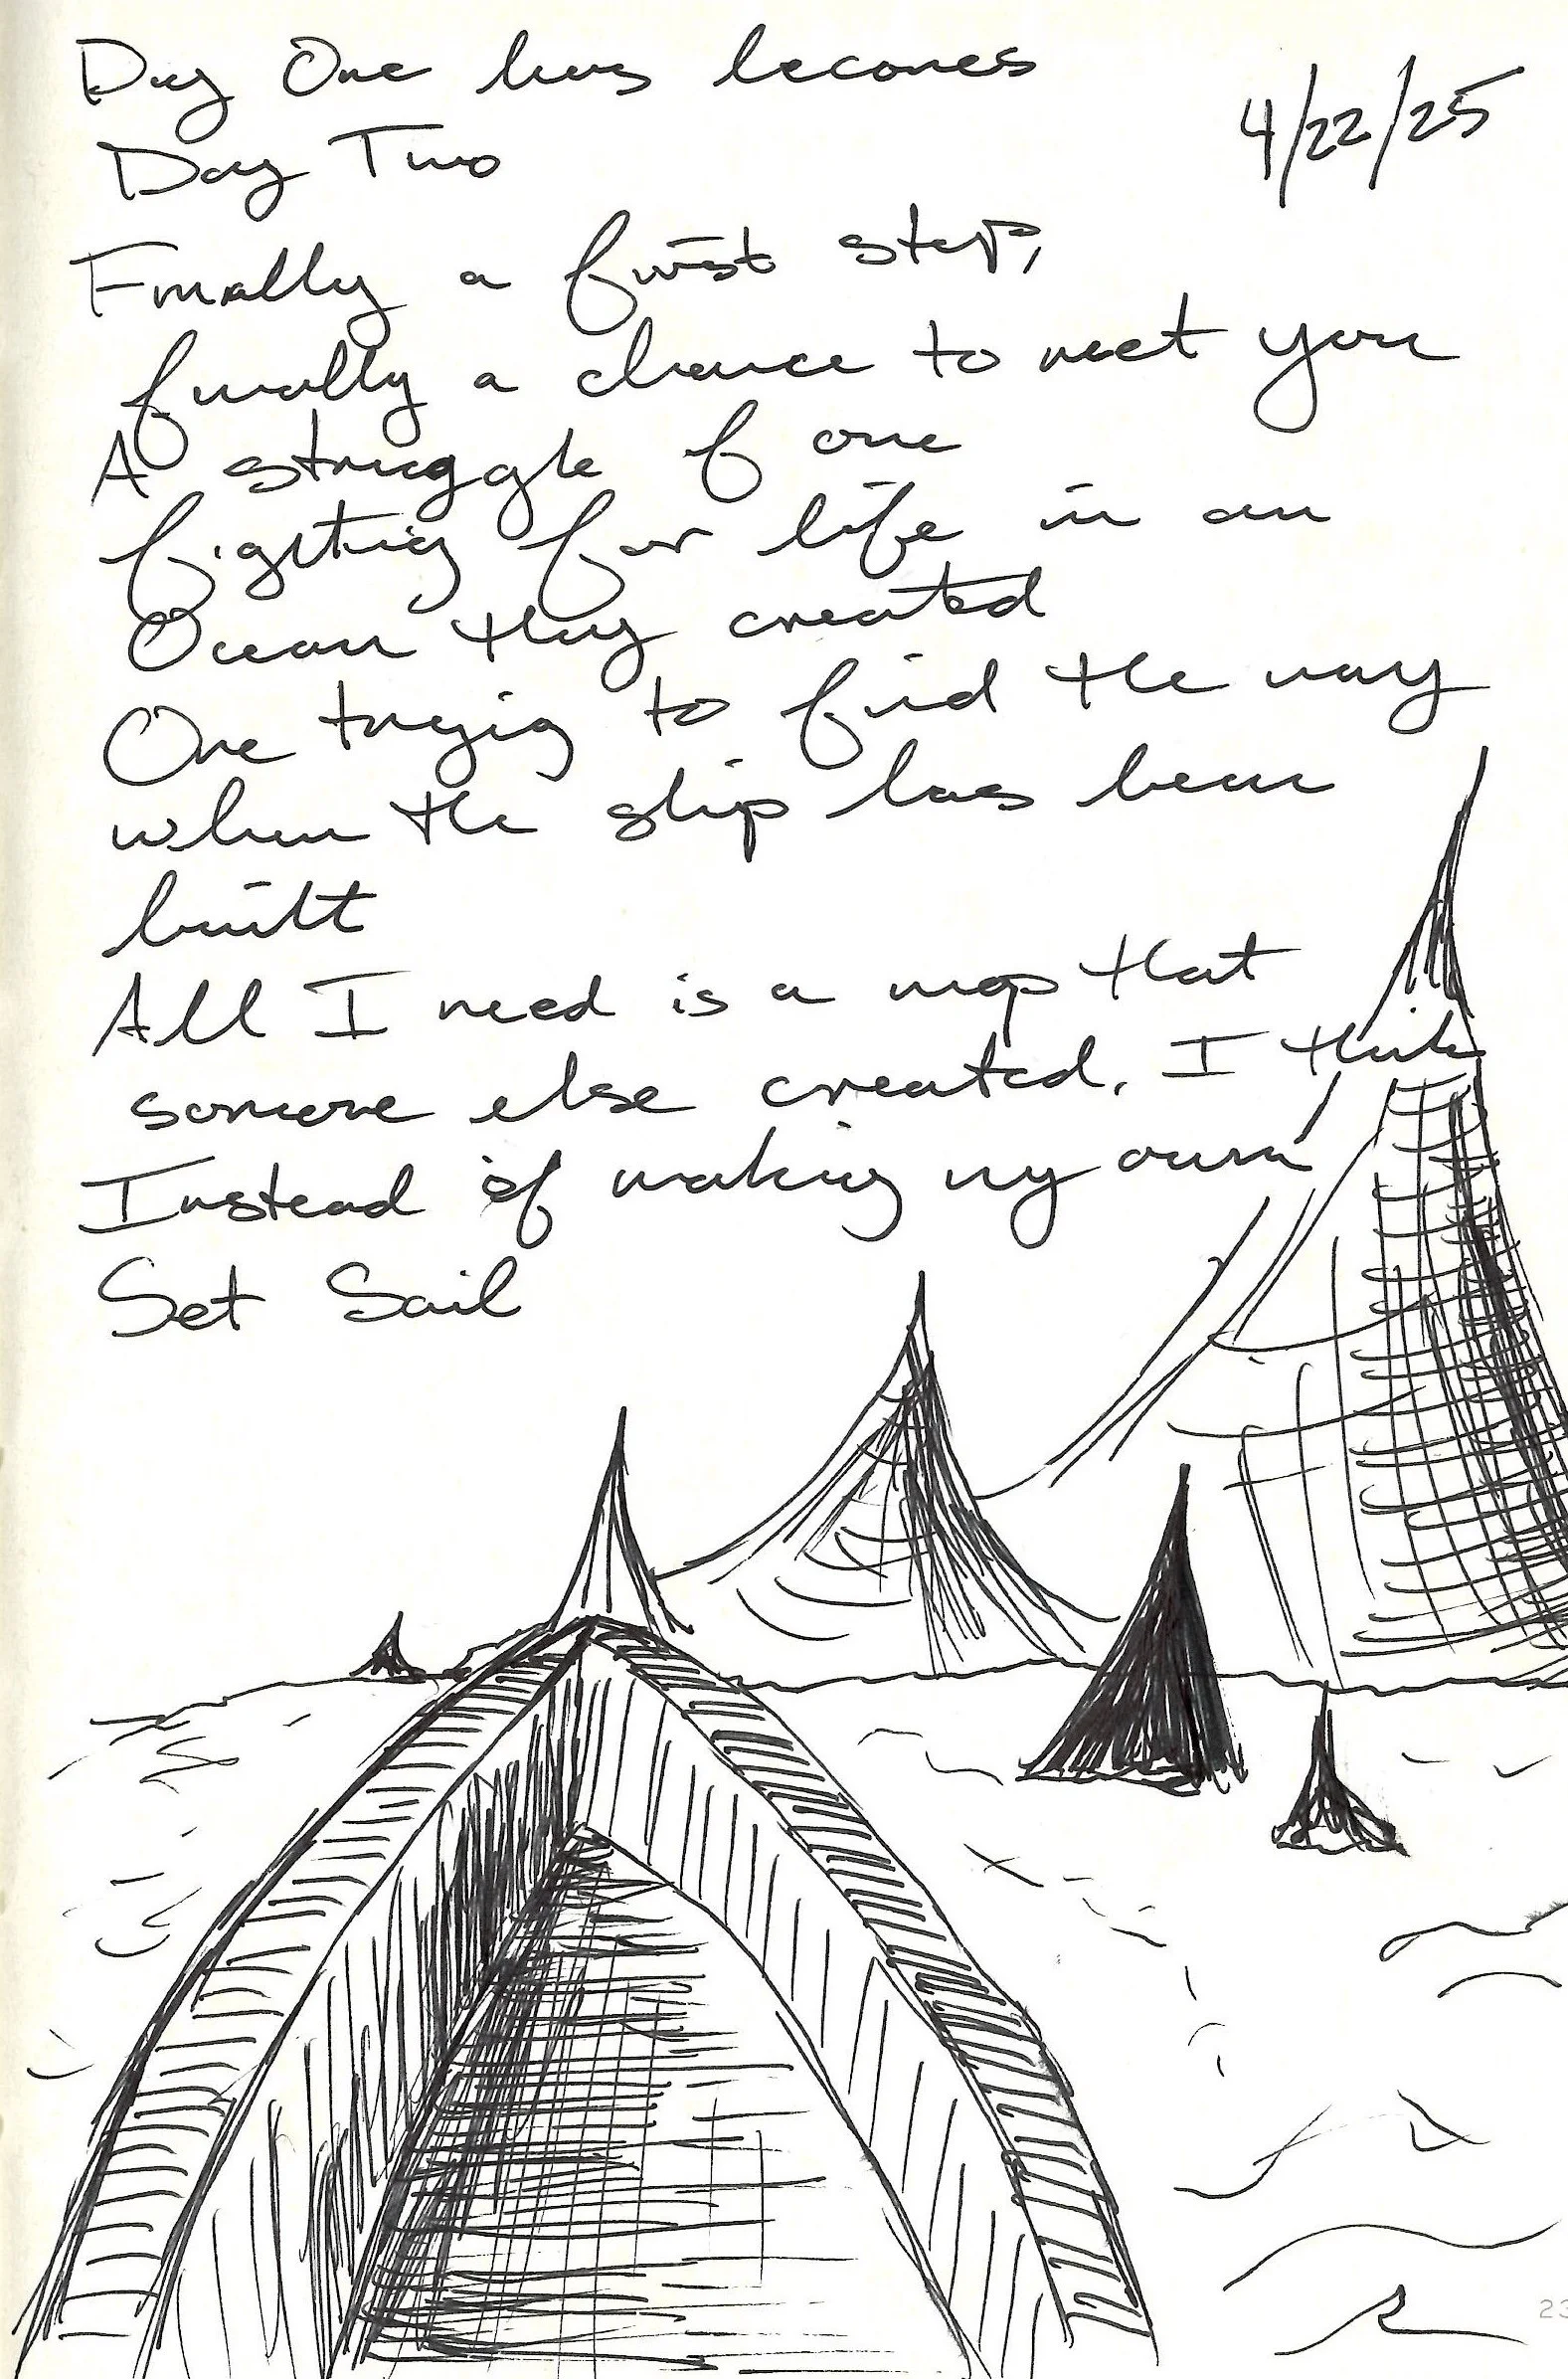 Day One has becomes
4/22/25
Day Two
Finally a first step,
finally a chance to meet you
A struggle of one
figting for life in an
Ocean they created
One trying to find the way
when the ship has been
built
All I need is a map that
someone else created, I think
Instead of making my own
Set Sail
23